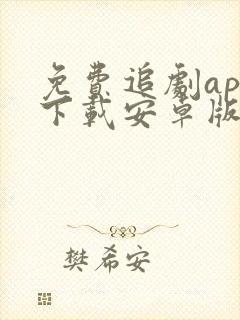 免費追劇ap
下載安卓版
樊希安